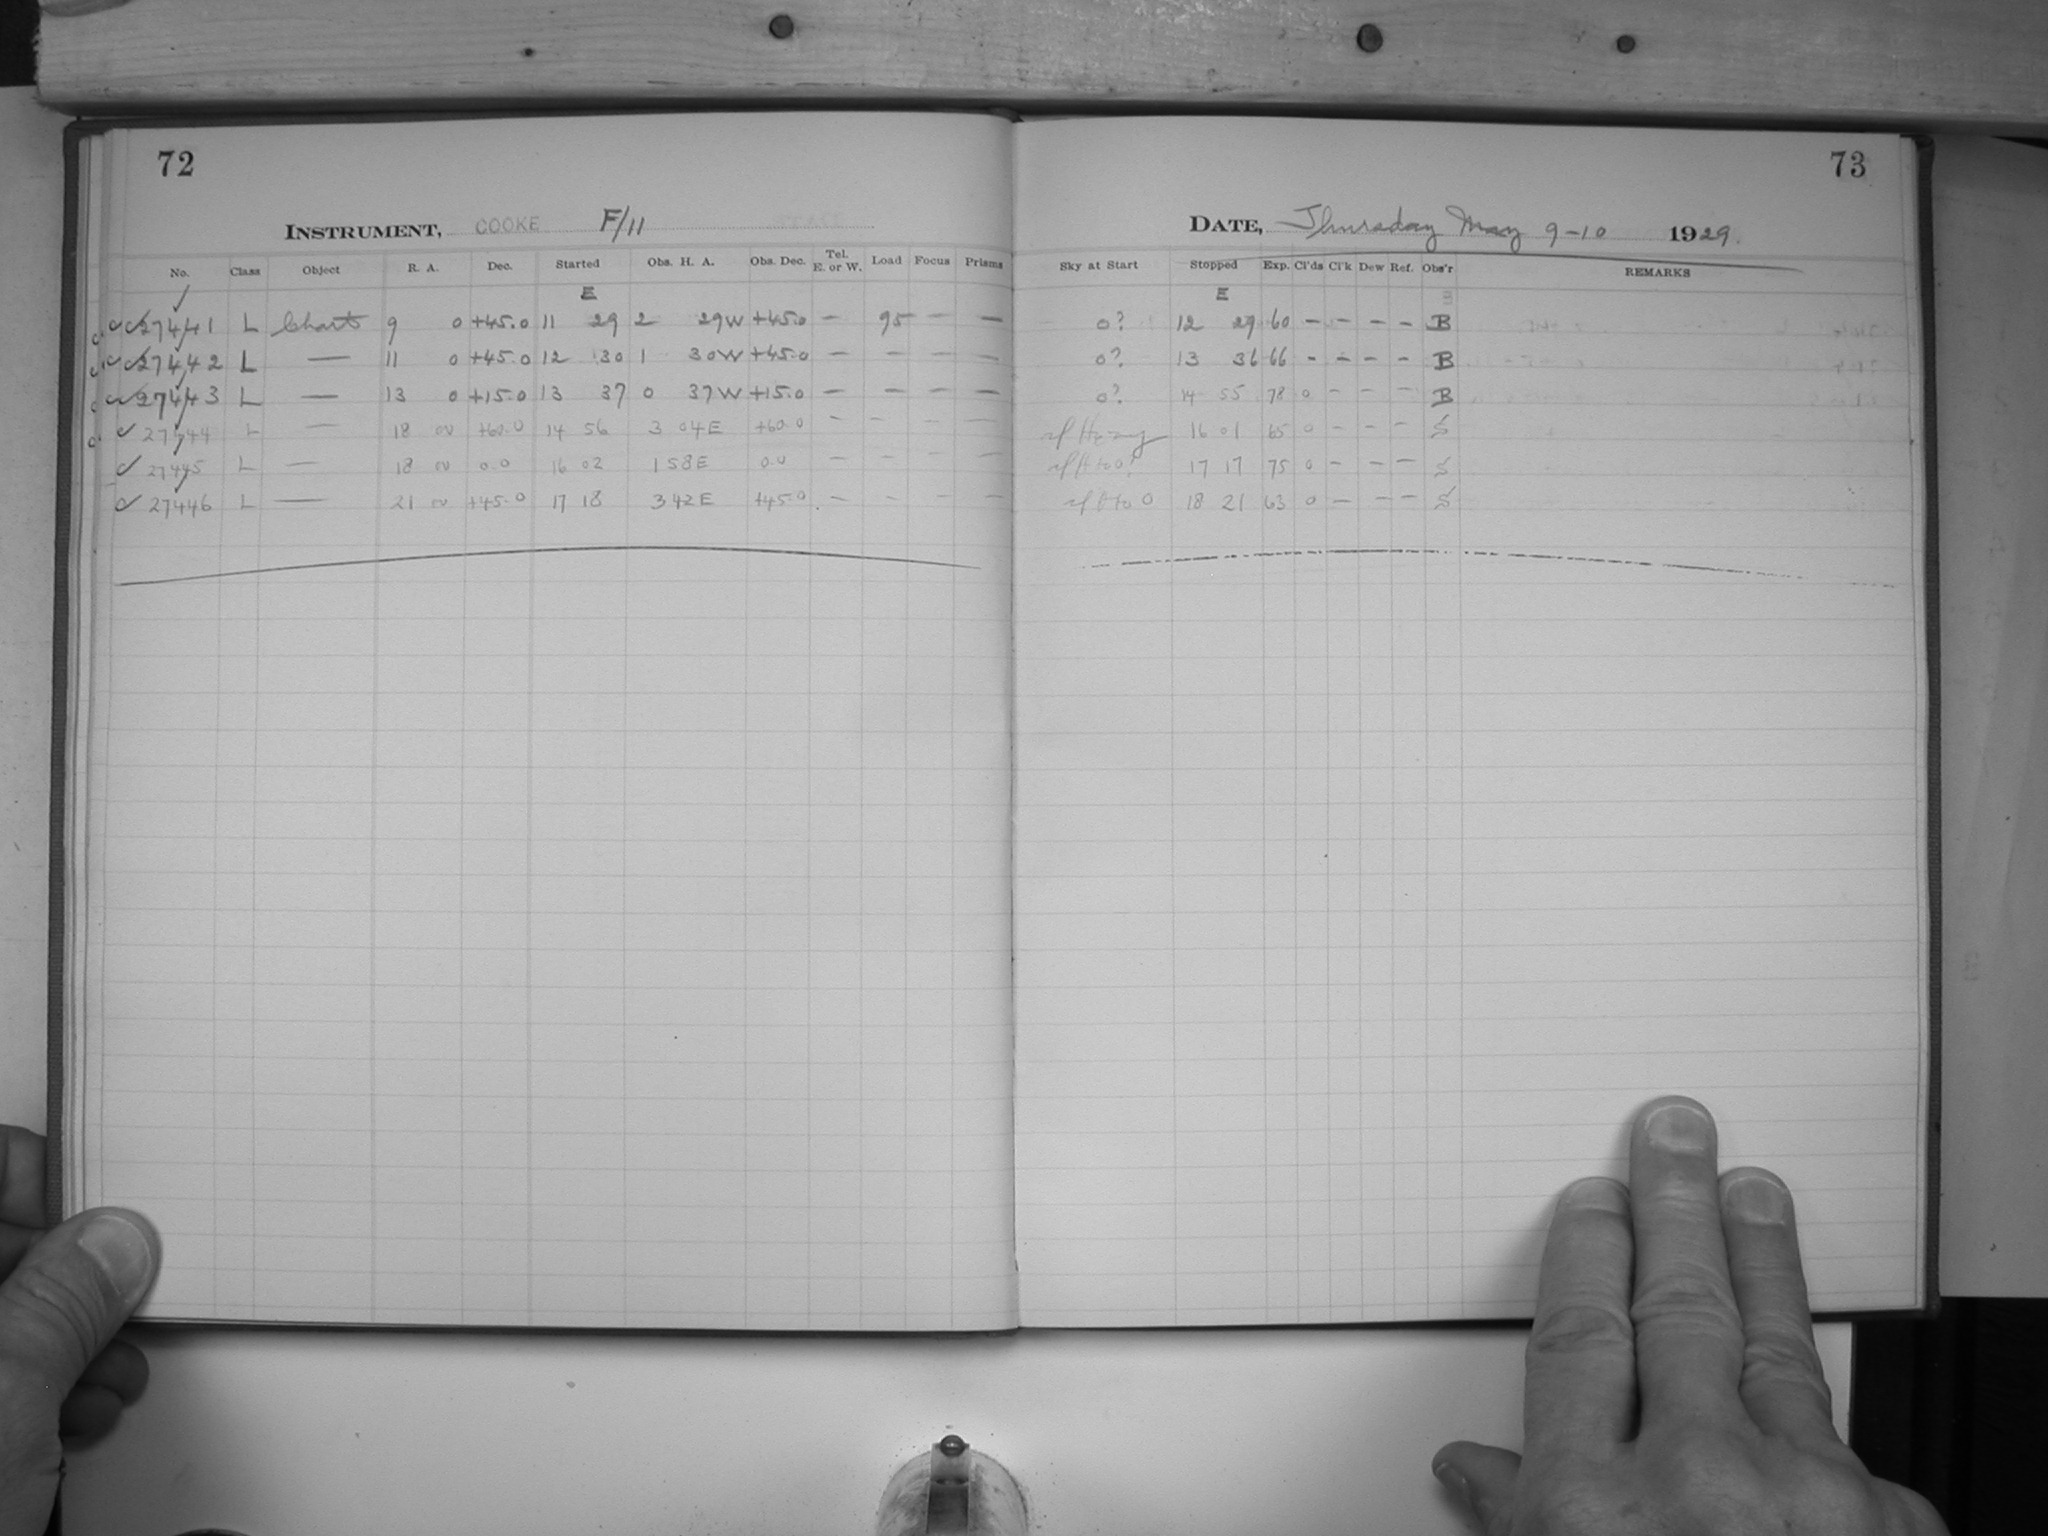 72
INSTRUMENT, COOKE F/11
No. Class Object R. A. Dec. Started Obs. H. A. Obs. Dec. Tel. E. or W. Load Focus Prisms
E
27441 L Charts 9 0 +45.0 11 29 2 29W +45.0 — 95 — —
27442 L — 11 0 +45.0 12 30 1 30W +45.0 — — — —
27443 L — 13 0 +15.0 13 37 0 37W +15.0 — — — —
27444 L — 18 00 +60.0 14 56 3 04E +60.0 — — — —
27445 L — 18 00 0.0 16 02 1 58E 0.0 — — — —
27446 L — 21 00 +45.0 17 18 3 42E +45.0 — — — —
73
DATE, Thursday May 9-10 1929.
Sky at Start Stopped Exp. Cl'ds Cl'k Dew Ref. Obs'r REMARKS
E
0? 12 29 60 — — — — B
0? 13 36 66 - - - - B
0? 14 55 78 0 - - - B
16 01 65 0 - - - S
17 17 75 0 - - - S
18 21 63 0 - - - S